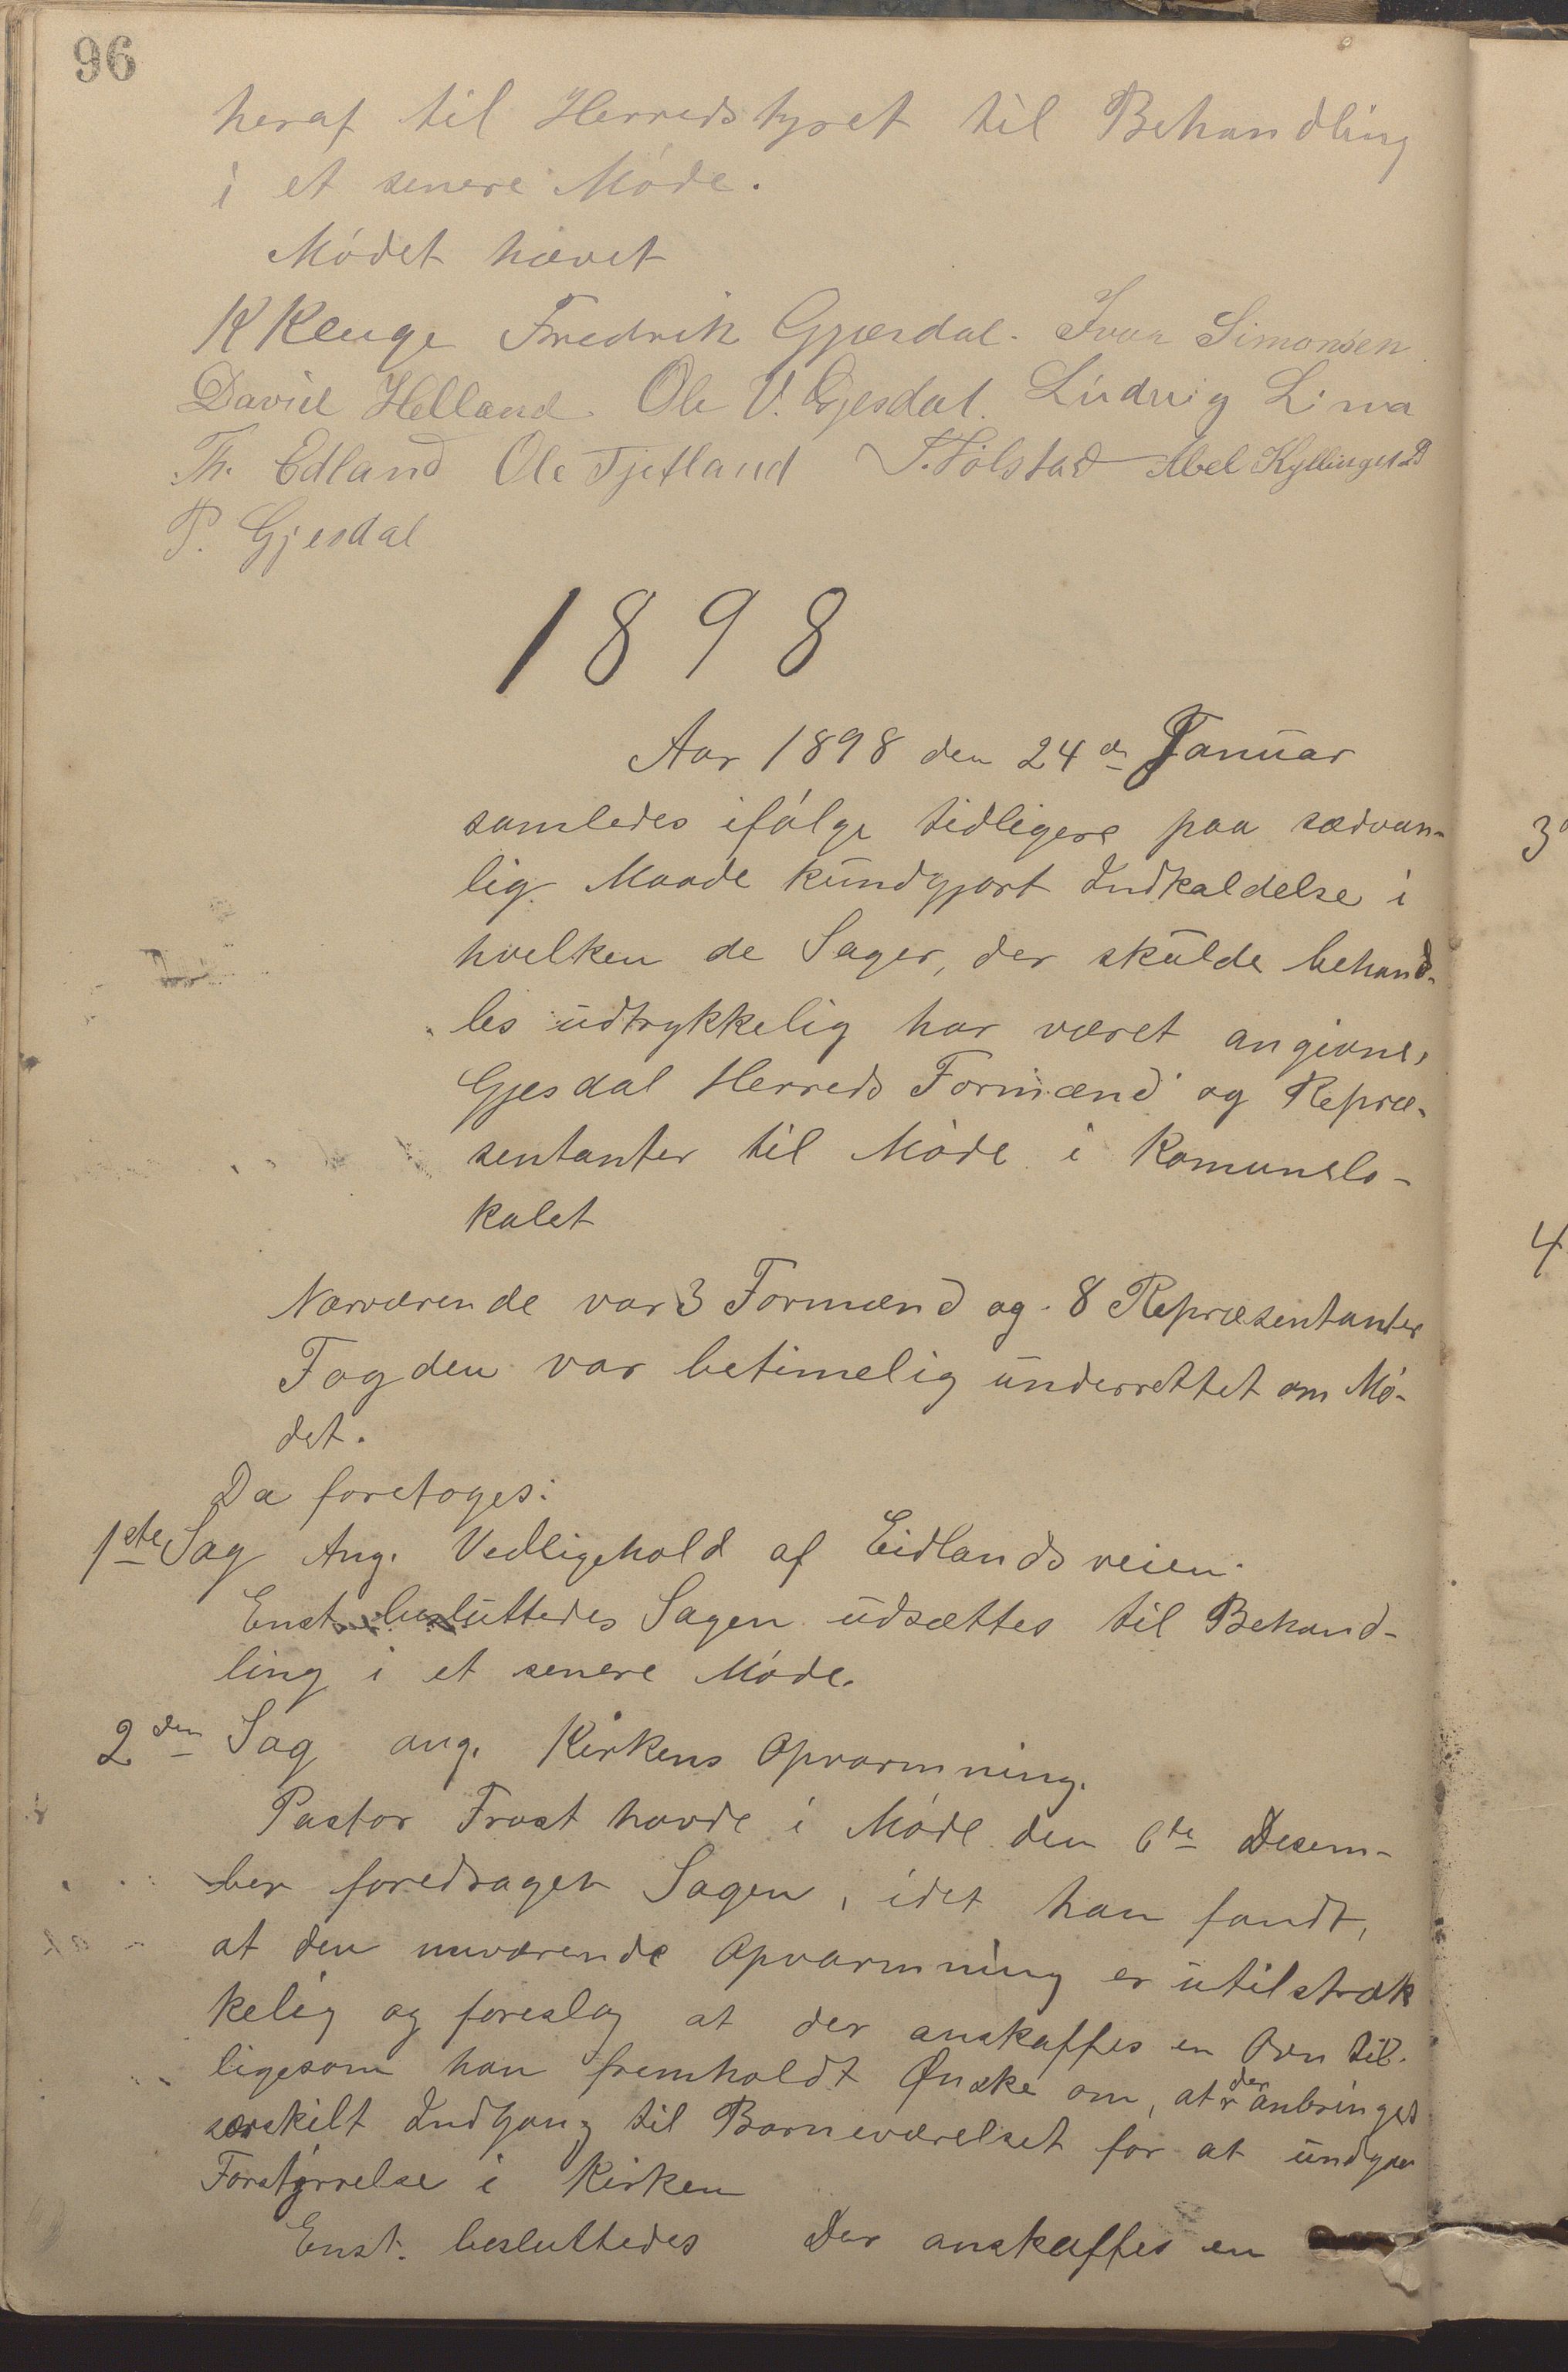 96
heraf til Herredstyret til Behandling
i et senere Møde.
Mødet hævet
K Kluge Fredrik Gjesdal. Ivar Simonsen
David Helland. Ole V. Gjesdal. Ludvig Lima
Th. Edland Ole Tjetland T. Tolstad Abel Kyllingst
P. Gjesdal
1898
Aar 1898 den 24de Januar
samledes ifølge tidligere paa sædvan-
lig Maade kundgjort Indkaldelse i
hvilken de Sager, der skulde behand-
les udtrykkelig har været angivne,
Gjesdal Herreds Formænd og Repræ-
sentanter til Møde i Komunelo-
kalet
Nærværende var 3 Formænd og 8 Repræsentanter
Fogden var betimelig underrettet om Mø-
det.
Da foretoges:
1ste Sag Ang. Vedligehold af Eidlandsveien.
Enst. besluttedes Sagen udsættes til Behand-
ling i et senere Møde.
2den Sag ang. Kirkens Opvarmning.
Pastor Frost havde i Møde den 6te Desem-
ber foredraget Sagen, idet han fandt,
at den nuværende Opvarmning er utilstræk
kelig og foreslog at der anskaffes en Ovn til.
ligesom han fremholdt Ønske om, at der anbringes
særskilt Indgang til Barneværelset for at undgaa
Forstyrrelse i Kirken
Enst. besluttedes Der anskaffes en
3
4